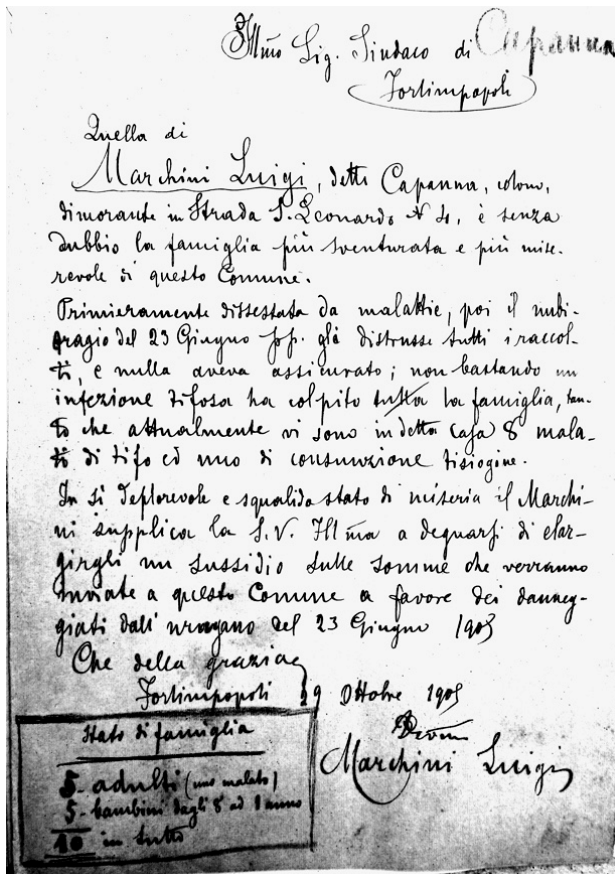 Illmo Sig. Sindaco di Capanna
Forlimpopoli
Quella di
Marchini Luigi, detto Capanna, colono,
dimorante in Strada S. Leonardo N 4, è senza
dubbio la famiglia più sventurata e più mise-
revole di questo Comune.
Primieramente dissestata da malattie, poi il nubi-
fragio del 23 Giugno pp. già distrusse tutti i raccol-
ti, e nulla aveva assicurato; non bastando un
infezione tifosa ha colpito tutta la famiglia, tan-
to che attualmente vi sono in detta casa 8 mala-
ti di tifo ed uno di consunzione
In sì deplorevole e squalido stato di miseria il Marchi-
ni supplica la S. V. Illma a degnarsi di elar-
girgli un sussidio sulle somme che verranno
inviate a questo Comune a favore dei danneg-
giati dall' uragano del 23 Giugno 1905
Che della grazia
Forlimpopoli 29 Ottobre 1905
Marchini Luigi
Stato di famiglia
5 - adulti (uno malato)
5 - bambini dagli 8 ad 1 anno
10 in tutto